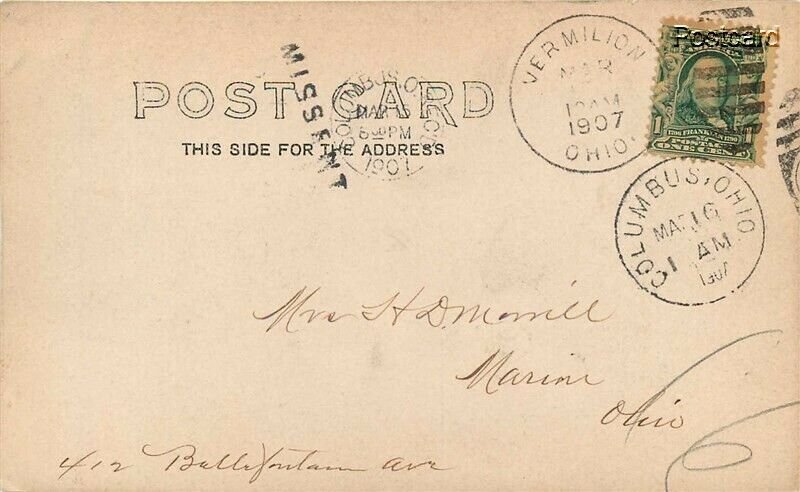 POST CARD
THIS SIDE FOR THE ADDRESS
MISSENT
COLUMBUS, O.
MAR 15
5 30 PM
1907
VERMILION
MAR
12 AM
1907
OHIO.
Postcard
1
1706 FRANKLIN 1790
POSTAGE
ONE CENT
COLUMBUS, OHIO
MAR 16
1 AM
1907
Mrs H D. Morrill
Marion
Ohio
412 Bellefontain ave
6